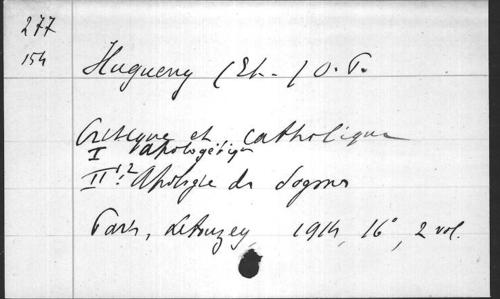 277
154
Hugueny (Et.-) O. P.
Critique et catholique
I Apologétique
II 1.2 Apologie des Dogmes
Paris, Letouzey, 1914, 16°, 2 vol.